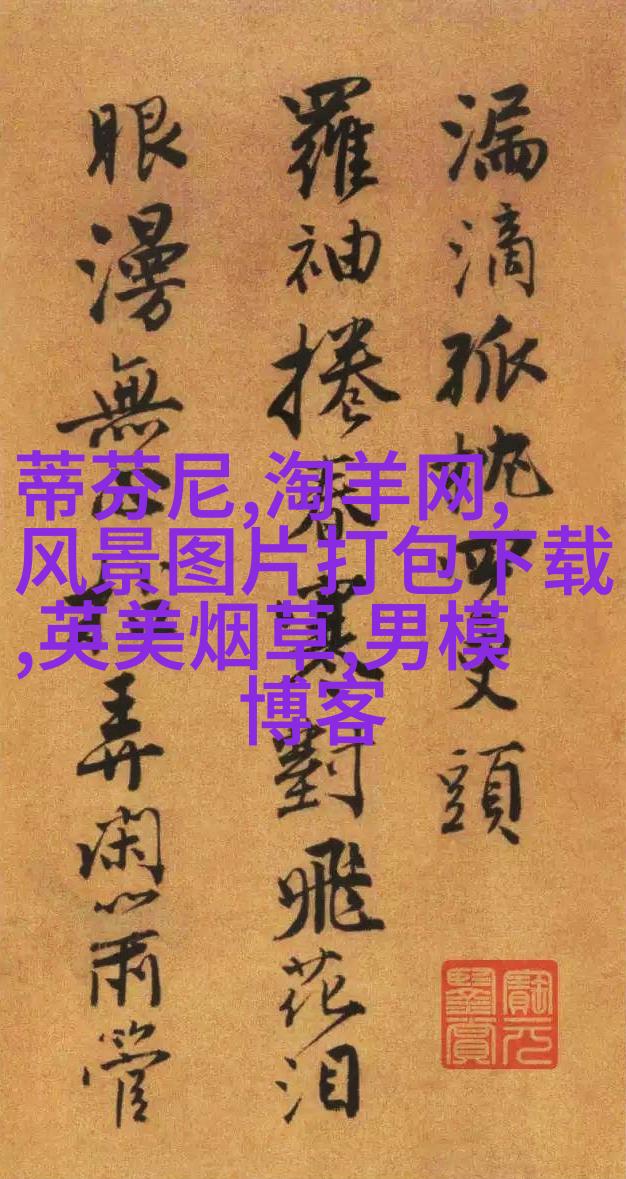 漏滴孤枕四更頭
羅袖捲春寒對飛花泪
眼漫無弄閑心兩管
蒂芬尼,淘羊网,
风景图片打包下载
,英美烟草,男模
博客